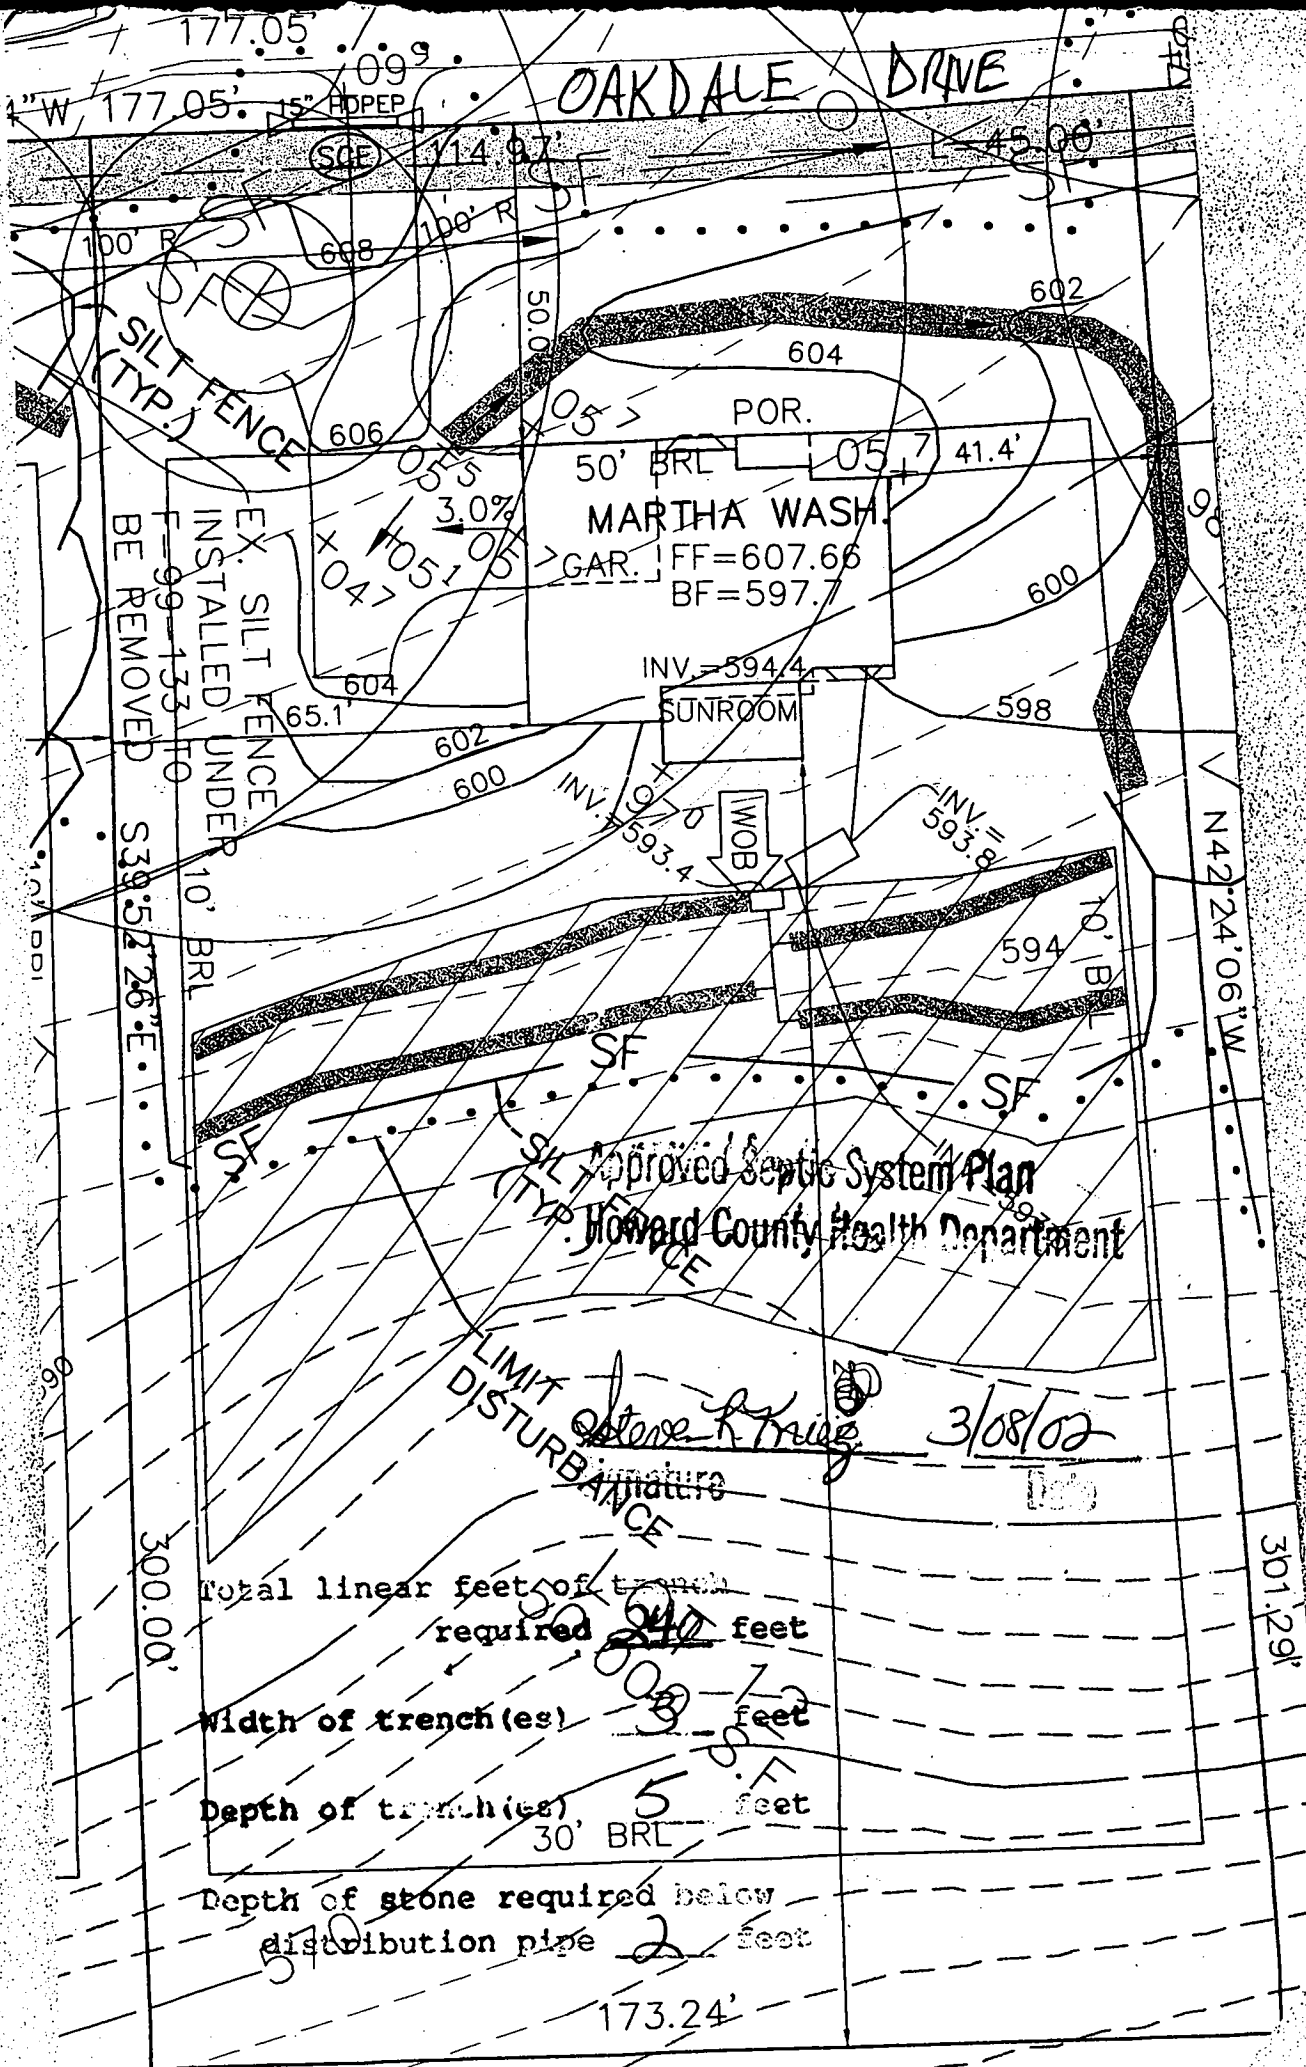 177.05'
OAKDALE DRIVE
177.05'
15" HDPEP
SCE
114.97'
45.00'
SF
SF
SF
SF
100' R
100' R
608
50.0
602
604
SILT FENCE
(TYP.)
606
POR.
50' BRL
41.4'
3.0%
MARTHA WASH.
GAR.
FF=607.66
BF=597.7
600
EX. SILT FENCE
INSTALLED UNDER
F-99-133 TO
BE REMOVED
INV.=594.4
SUNROOM
604
65.1'
598
602
600
INV.=593.4
WOB
INV.=
593.8
10' BRL
S39°52'26"E
N42°24'06"W
594
10' BRL
SF
SF
SF
SILT FENCE
(TYP.)
Approved Septic System Plan
Howard County Health Department
LIMIT OF
DISTURBANCE
3/08/02
Signature
Date
300.00'
301.29'
Total linear feet of trench
required 240 feet
Width of trench(es) 3 feet
Depth of trench(es) 5 feet
30' BRL
Depth of stone required below
distribution pipe 2 feet
570
173.24'